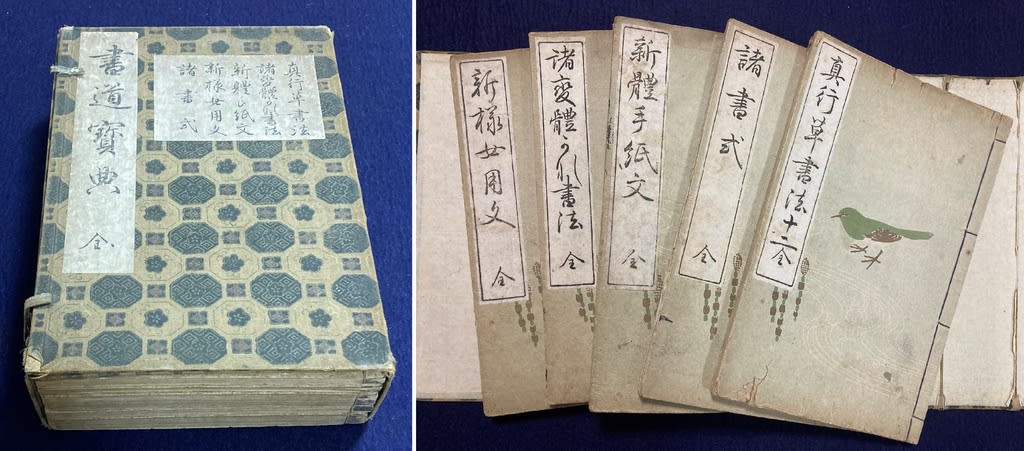 書道寶典 全
真行草書法
諸変體かな書法
新體手紙文
新様女用文
諸書式
新様女用文 全
諸変體かな書法 全
新體手紙文 全
諸書式 全
真行草書法 全